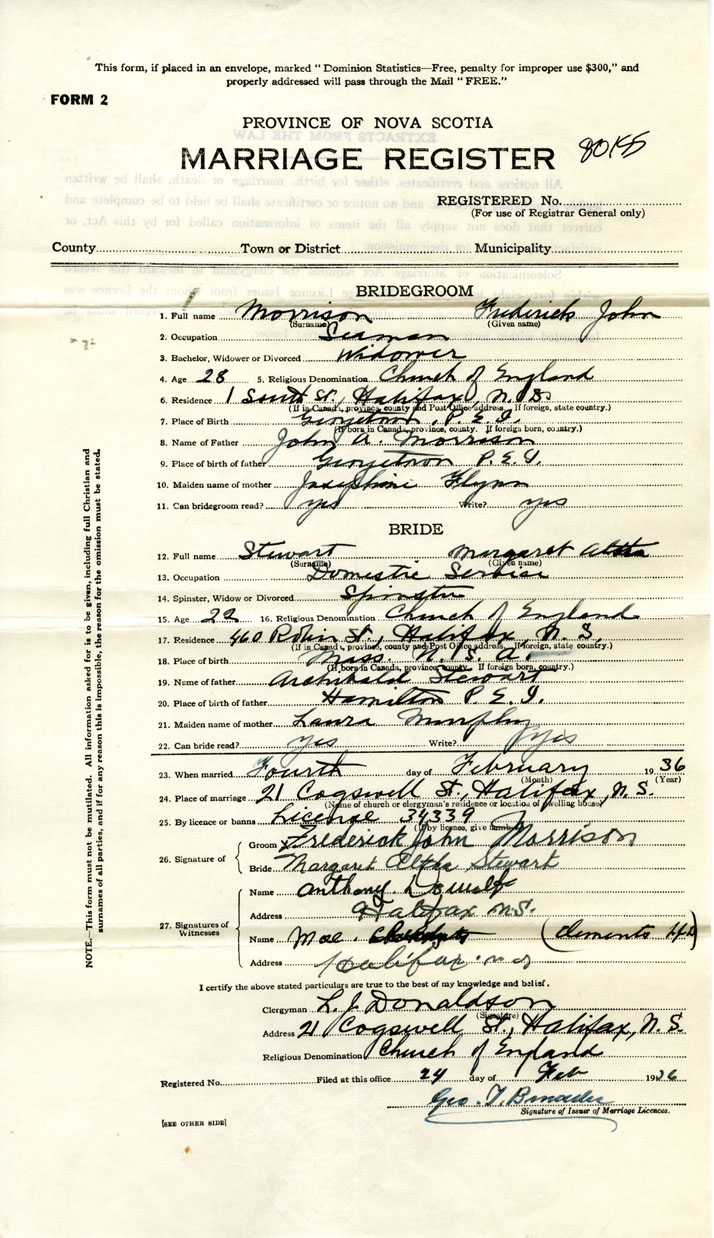 This form, if placed in an envelope, marked " Dominion Statistics—Free, penalty for improper use $300," and
properly addressed will pass through the Mail " FREE."
FORM 2
PROVINCE OF NOVA SCOTIA
MARRIAGE REGISTER
REGISTERED No.
(For use of Registrar General only)
County Town or District Municipality
BRIDEGROOM
1. Full name Morrison Frederick John
(Surname) (Given name)
2. Occupation Seaman
3. Bachelor, Widower or Divorced Widower
4. Age 28 5. Religious Denomination Church of England
6. Residence 1 South St, Halifax, N.S.
(If in Canada, province, county and Post Office address. If foreign, state country.)
7. Place of Birth Georgetown, P.E.I.
(If born in Canada, province, county. If foreign born, country.)
8. Name of Father John A. Morrison
9. Place of birth of father Georgetown P.E.I.
10. Maiden name of mother Josephine Flynn
11. Can bridegroom read? yes Write? yes
BRIDE
12. Full name Stewart Margaret
(Surname) (Given name)
13. Occupation Domestic Service
14. Spinster, Widow or Divorced Spinster
15. Age 22 16. Religious Denomination Church of England
17. Residence 460 Robie St, Halifax, N.S.
(If in Canada, province, county and Post Office address. If foreign, state country.)
18. Place of birth Mass. U.S.A.
(If born in Canada, province county. If foreign born, country.)
19. Name of father Archibald Stewart
20. Place of birth of father Hamilton P.E.I.
21. Maiden name of mother Laura Murphy
22. Can bride read? yes Write? yes
23. When married Fourth day of February 1936
(Month) (Year)
24. Place of marriage 21 Cogswell St, Halifax, N.S.
(Name of church or clergyman's residence or location of dwelling house)
25. By licence or banns License 34339
(If by licence, give number)
26. Signature of
Groom x Frederick John Morrison
Bride Margaret Stewart
27. Signatures of Witnesses
Name Anthony
Address Halifax N.S.
Name Mae (Clements
Address Halifax N S
I certify the above stated particulars are true to the best of my knowledge and belief.
Clergyman L. J. Donaldson
(Signature)
Address 21 Cogswell St, Halifax, N.S.
Religious Denomination Church of England
Registered No. Filed at this office 24 day of Feb 1936
Geo. T.
Signature of Issuer of Marriage Licences.
[SEE OTHER SIDE]
NOTE.—This form must not be mutilated. All information asked for is to be given, including full Christian and
surnames of all parties, and if for any reason this is impossible, the reason for the omission must be stated.